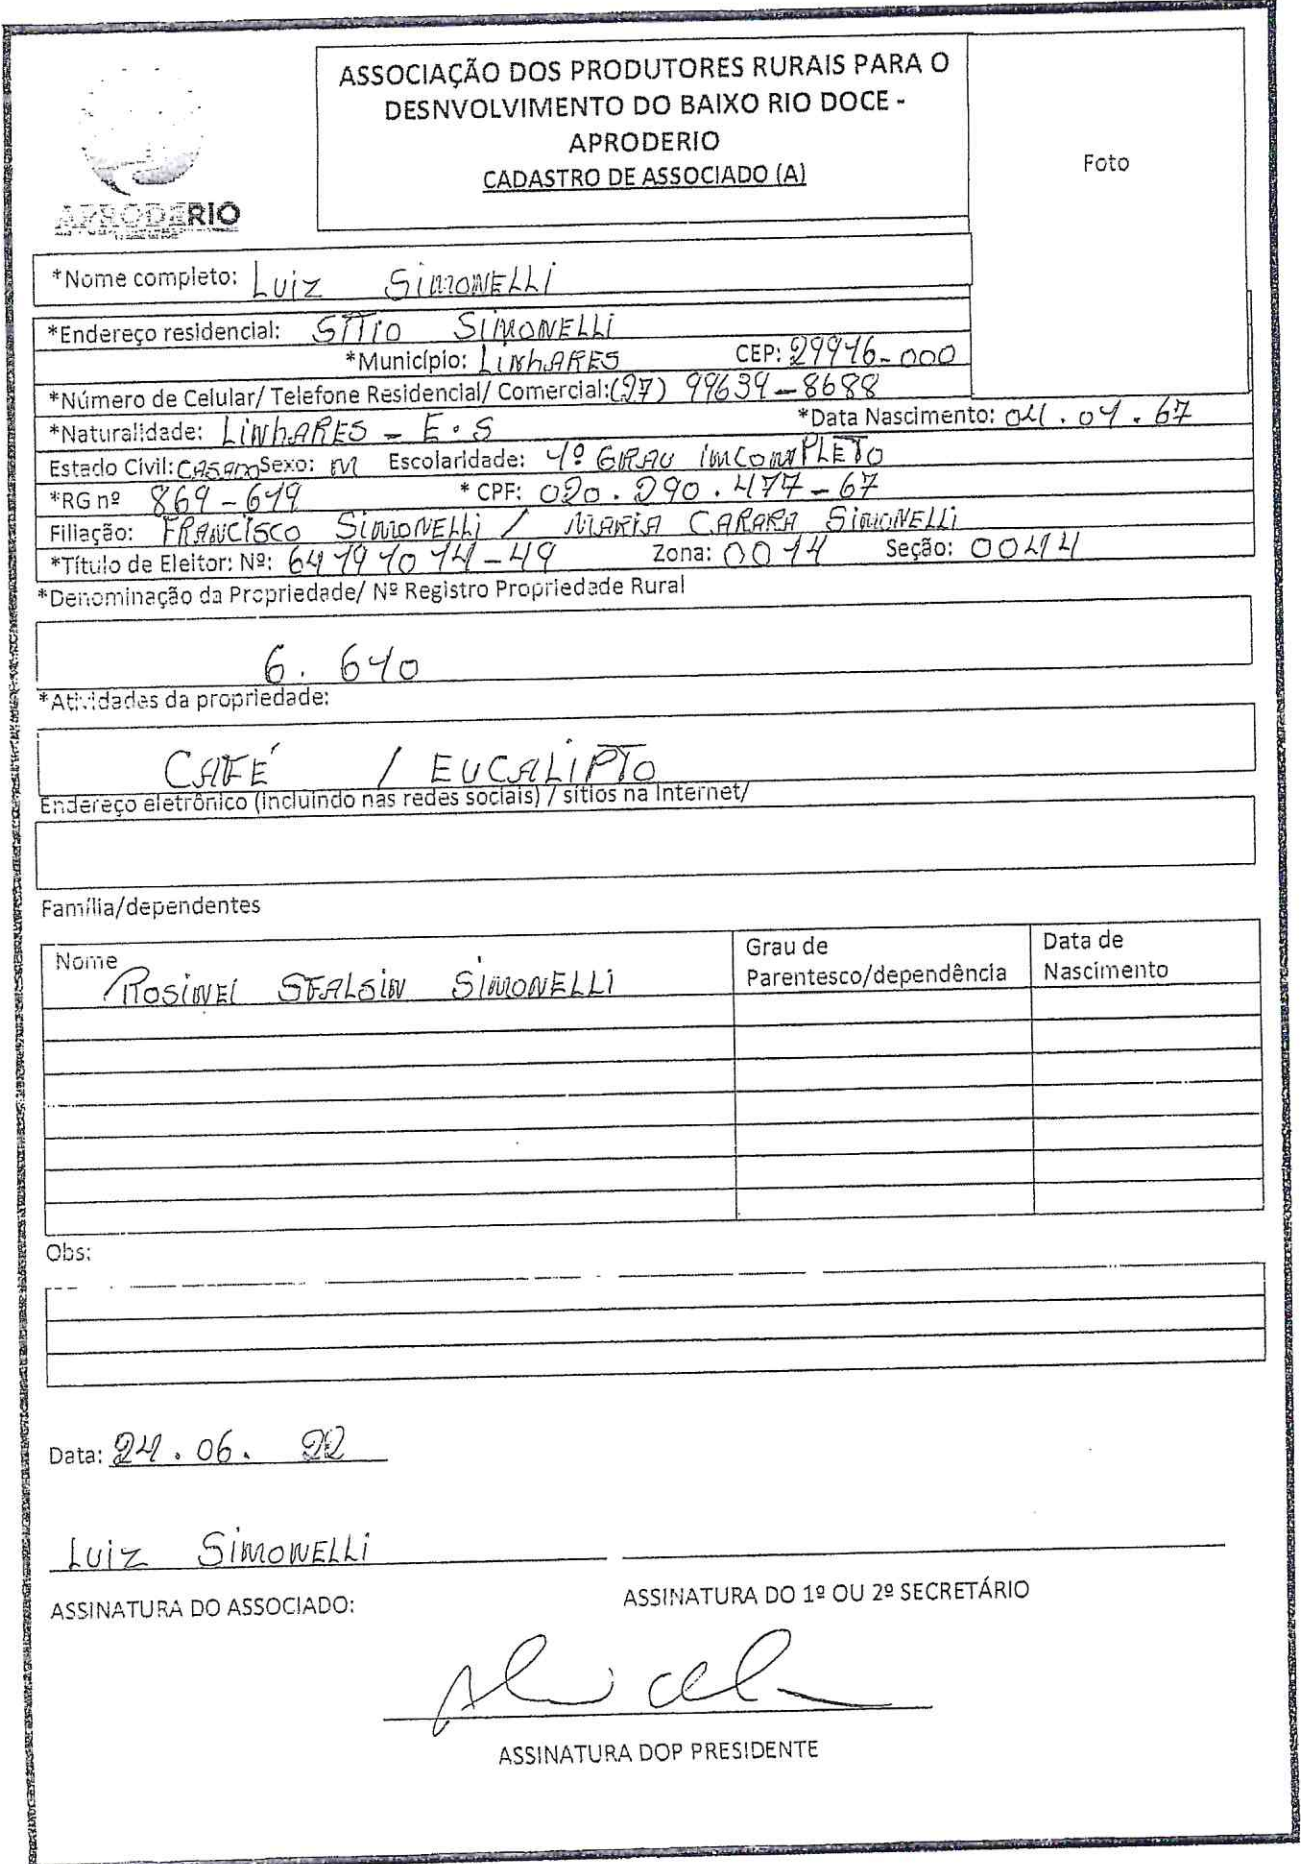 ASSOCIAÇÃO DOS PRODUTORES RURAIS PARA O
DESNVOLVIMENTO DO BAIXO RIO DOCE -
APRODERIO
CADASTRO DE ASSOCIADO (A)
Foto
APRODERIO
*Nome completo: Luiz Simonelli
*Endereço residencial: Sítio Simonelli
*Município: Linhares CEP:
*Número de Celular/ Telefone Residencial/ Comercial:(27) 99639-8688
*Naturalidade: Linhares - E.S *Data Nascimento:
Estado Civil: Casado Sexo: M Escolaridade: Girau imcompleto
*RG nº * CPF:
Filiação: Francisco Simonelli / Maria Carara Simonelli
*Título de Eleitor: Nº: Zona: Seção:
*Denominação da Propriedade/ Nº Registro Propriedade Rural
*Atividades da propriedade:
Café / Eucalipto
Endereço eletrônico (incluindo nas redes sociais) / sítios na Internet/
Família/dependentes
Nome Grau de Parentesco/dependência Data de Nascimento
Simonelli
Obs:
Data: 24.06. 22
Luiz Simonelli
ASSINATURA DO ASSOCIADO: ASSINATURA DO 1º OU 2º SECRETÁRIO
ASSINATURA DOP PRESIDENTE